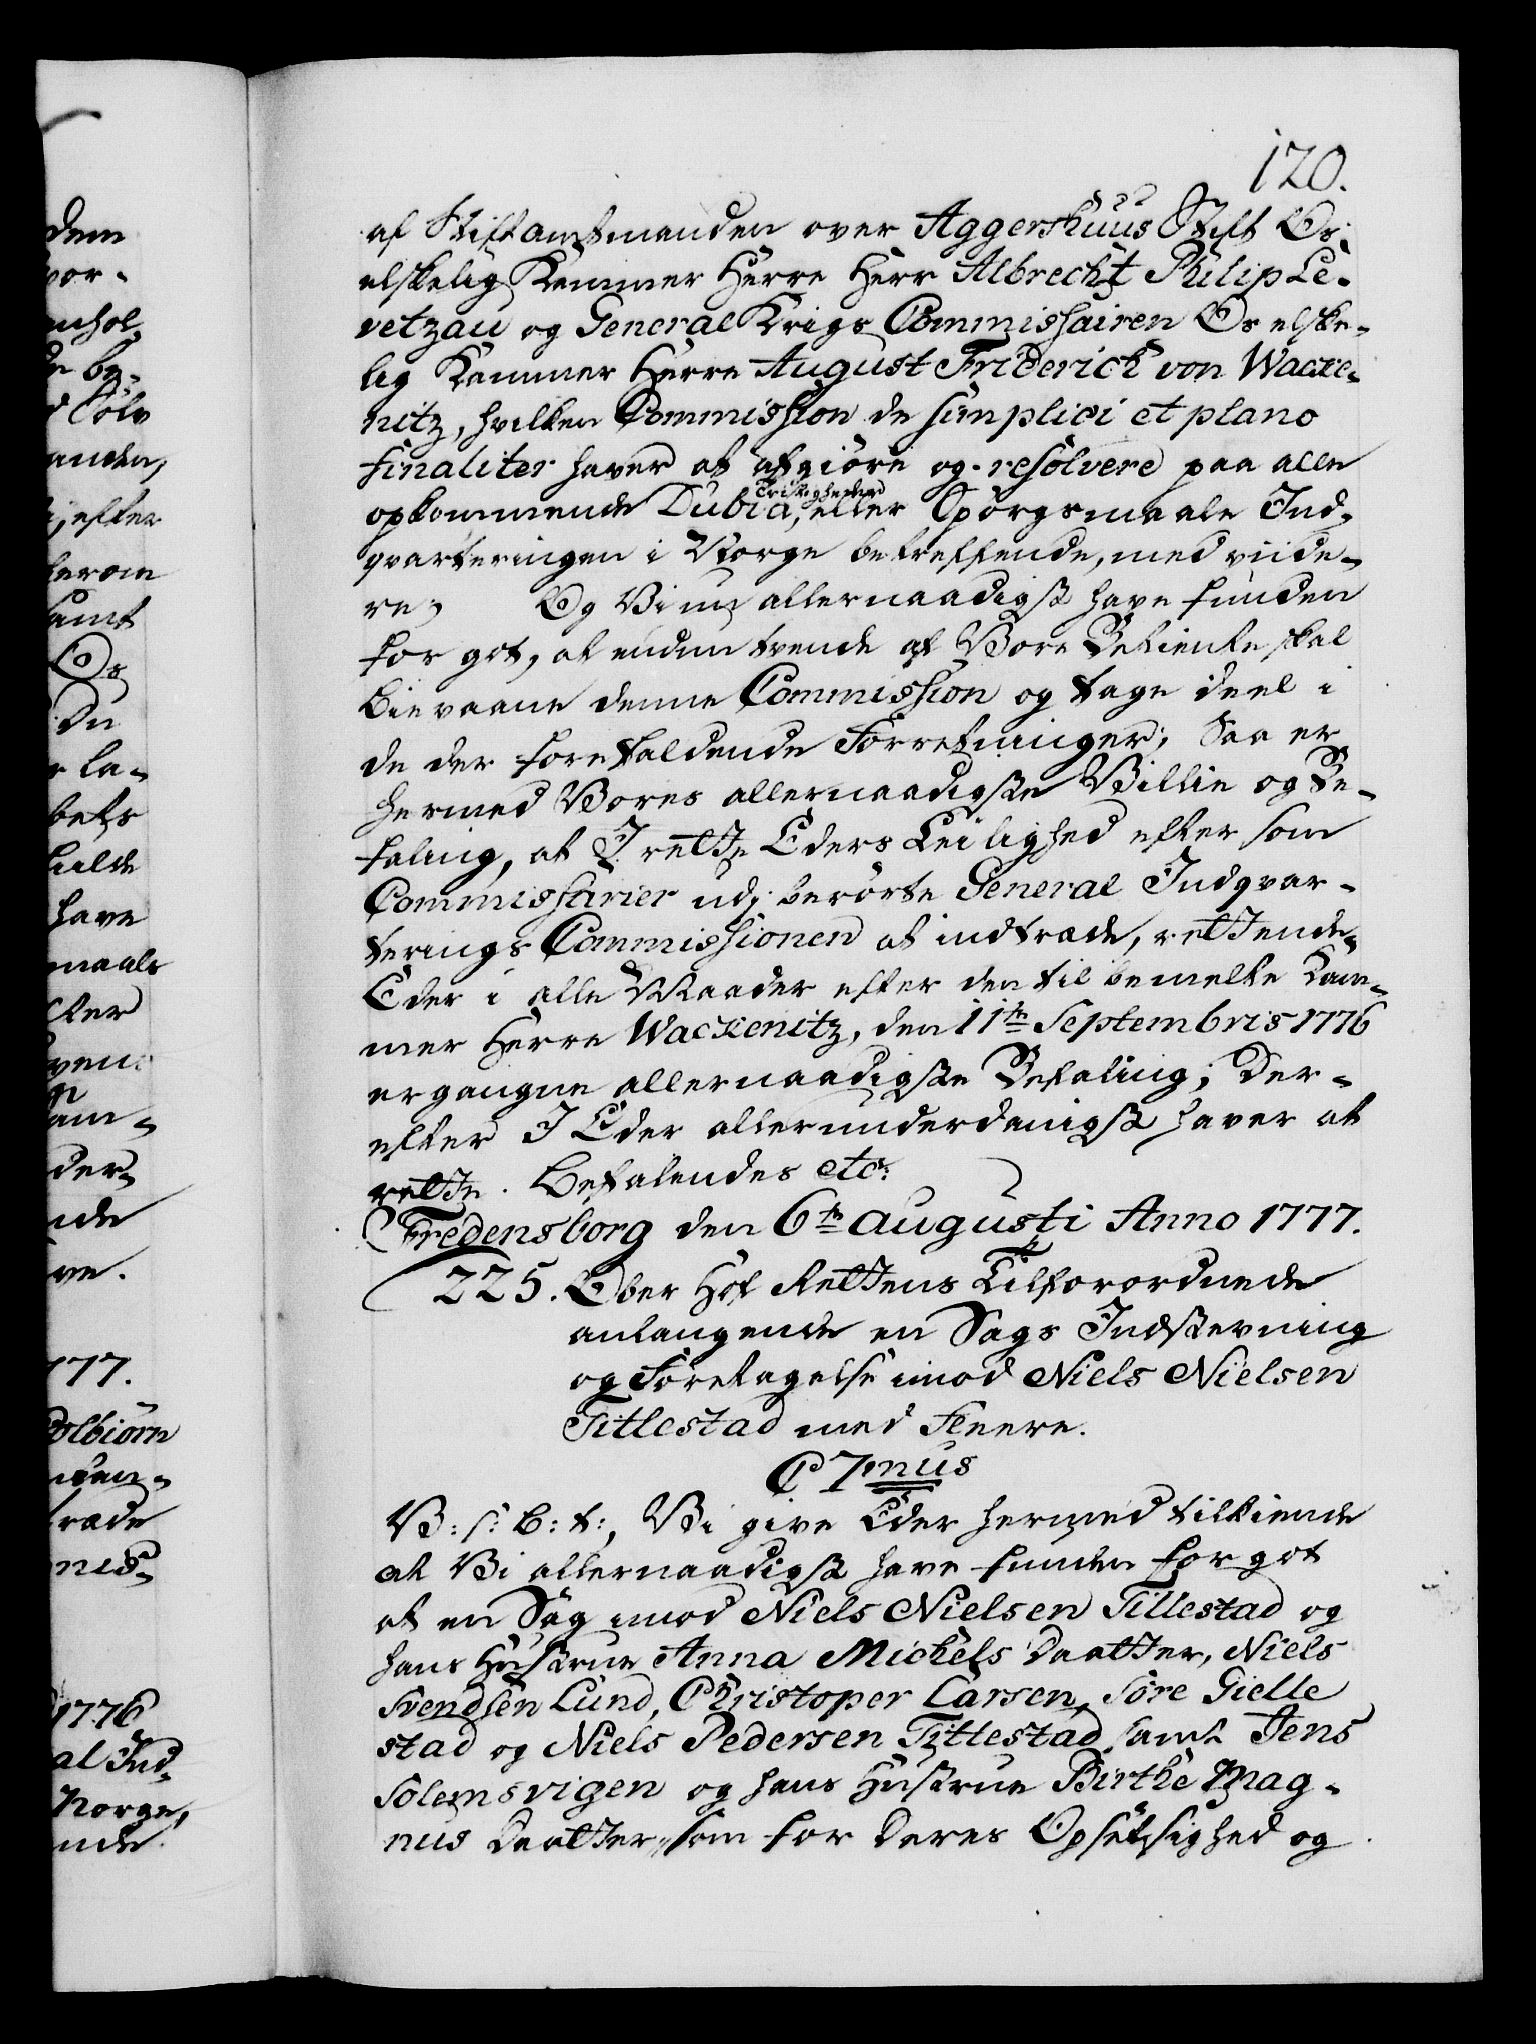 120.
af Stiftamtmanden over Aggershuus Stift Os
elskelig Kammer Herre Herr Albrecht Philip Le-
vetzau og General Krigs Commissairen Os elske-
lig Kammer Herre August Friderich von Wacke-
nitz, hvilken Commission de simplici et plano
finaliter haver at afgiöre og resolvere paa alle
opkommende Dubia, Tvistigheder eller Spörgsmaale Ind-
qvarteringen i Norge betreffende, med viide-
re; Og Vi nu allernaadigst have funden
for got, at endnu tvende af Vore Betiente skal
bievaane denne Commission og tage deel i
de der forefaldende Forretninger; Saa er
hermed Vores allernaadigste Villie og Be-
faling, at I rette Eders Leilighed efter som
Commissarier udj berörte General Indqvar-
terings Commissionen at indtræde, rettende
Eder i alle Maader efter den til bemelte Kam-
mer Herre Wackenitz, den 11te Septembris 1776
ergangne allernaadigste Befaling; Der-
efter I Eder allerunderdanigst haver at
rette. Befalendes etc:
Fredensborg den 6te Augusti Anno 1777.
225. Ober Hof Rettens Tilforordnede
anlangende en Sags Indstevning
og Foretagelse imod Niels Nielsen
Tillestad med Fleere.
C 7mus
V: s: b: t:, Vi give Eder hermed tilkiende
at Vi allernaadigst have funden for got
at en Sag imod Niels Nielsen Tillestad og
hans Hustrue Anna Michels Daatter, Niels
Svendsen Lund, Christoper Larsen, Söre Gielle
stad og Niels Pedersen Tittestad samt Jens
Solemsvigen og hans Hustrue Birthe Mag-
nus Daatter, som for deres Opsetsighed og
dem
vor-
enhol-
be-
Sölv
anden,
efter
herom
samt
Os
Du
la-
bets
have
maale
efter
der-
nde
ve.
177.
olbiörn
træde
1776
al Ind-
Norge,
nde.